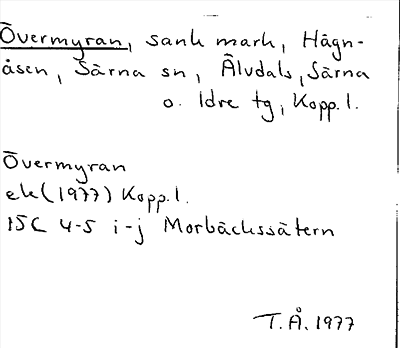 Övermyran, sank mark, Hägn-
åsen, Särna sn, Älvdals, Särna
o. Idre tg, Kopp. l.
Övermyran
ek (1977) Kopp. l.
15C 4-5 i-j Morbäckssätern
T.Å. 1977